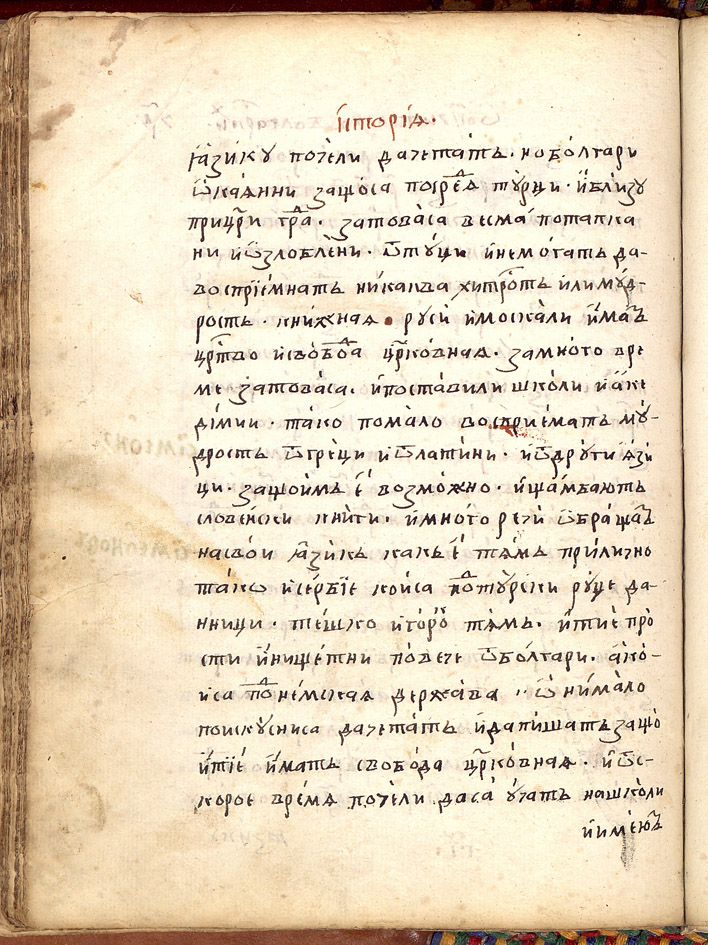 їсторїѧ·
ꙗзи́кꙋ поче́ли да четатъ· но бо́лгари
ѿкаѧ́нни защо́са посреⷣѣ тꙋ́рци· и҆ бли́зꙋ
при цр҃и гра́дⷣ· затова́са весма̀ потапка
ни и҆ ѡ҆зло́блѣни· ѿтꙋ́ци и҆ немо́гатъ да-
воспрїе́мнатъ ни́каква хи́трⷭ҇отъ и҆ли мꙋ́д-
рость· кни́жнаѧ· рꙋси и҆ моска́ли и҆́маⷮъ
црⷭ҇тво и҆ свобо́ⷣа цр҃ко́внаѧ· за мно́го вре
ме затова́са· и҆ поста́вили шко́ли и҆ а҆ке
ді́мии· та́ко пома́ло восприе́матъ мꙋ́-
дрость ѿ гре́ци и҆ ѿ лати́ни· и҆ ѿ дрꙋ́ги ꙗ҆зи́
ци· защо и҆́мъ є҆́ возмо́жно· и҆ ща́мбаютъ
слове́нски кни́ги· и҆ мно́го ре́чи ѡ҆браща́ⷮъ
на сво́и ꙗ҆зи́къ какъ є҆́ тѧ́мъ прили́чно
та́кѡ и҆ се́рбїе ко́иса поⷣ тꙋ́рски рꙋ́це да-
нници· те́шко и҆ го́рко тѧ́мъ· и҆ ти́е про
сти и҆ ни́щетни по́вече ѿ бо́лгари· а҆ко́-
иса поⷣ не́мскаѧ держа́ва·· ѡ҆ни́ мало
поискꙋ́сниса да че́татъ и҆ да пи́шатъ защо̀
и҆ ті́е и҆́матъ свобо́да цр҃ко́внаѧ· и҆ ѿс-
корое вре́мѧ поче́ли да са ꙋ҆́чатъ на шко́ли
и҆ имѣ́юⷮъ